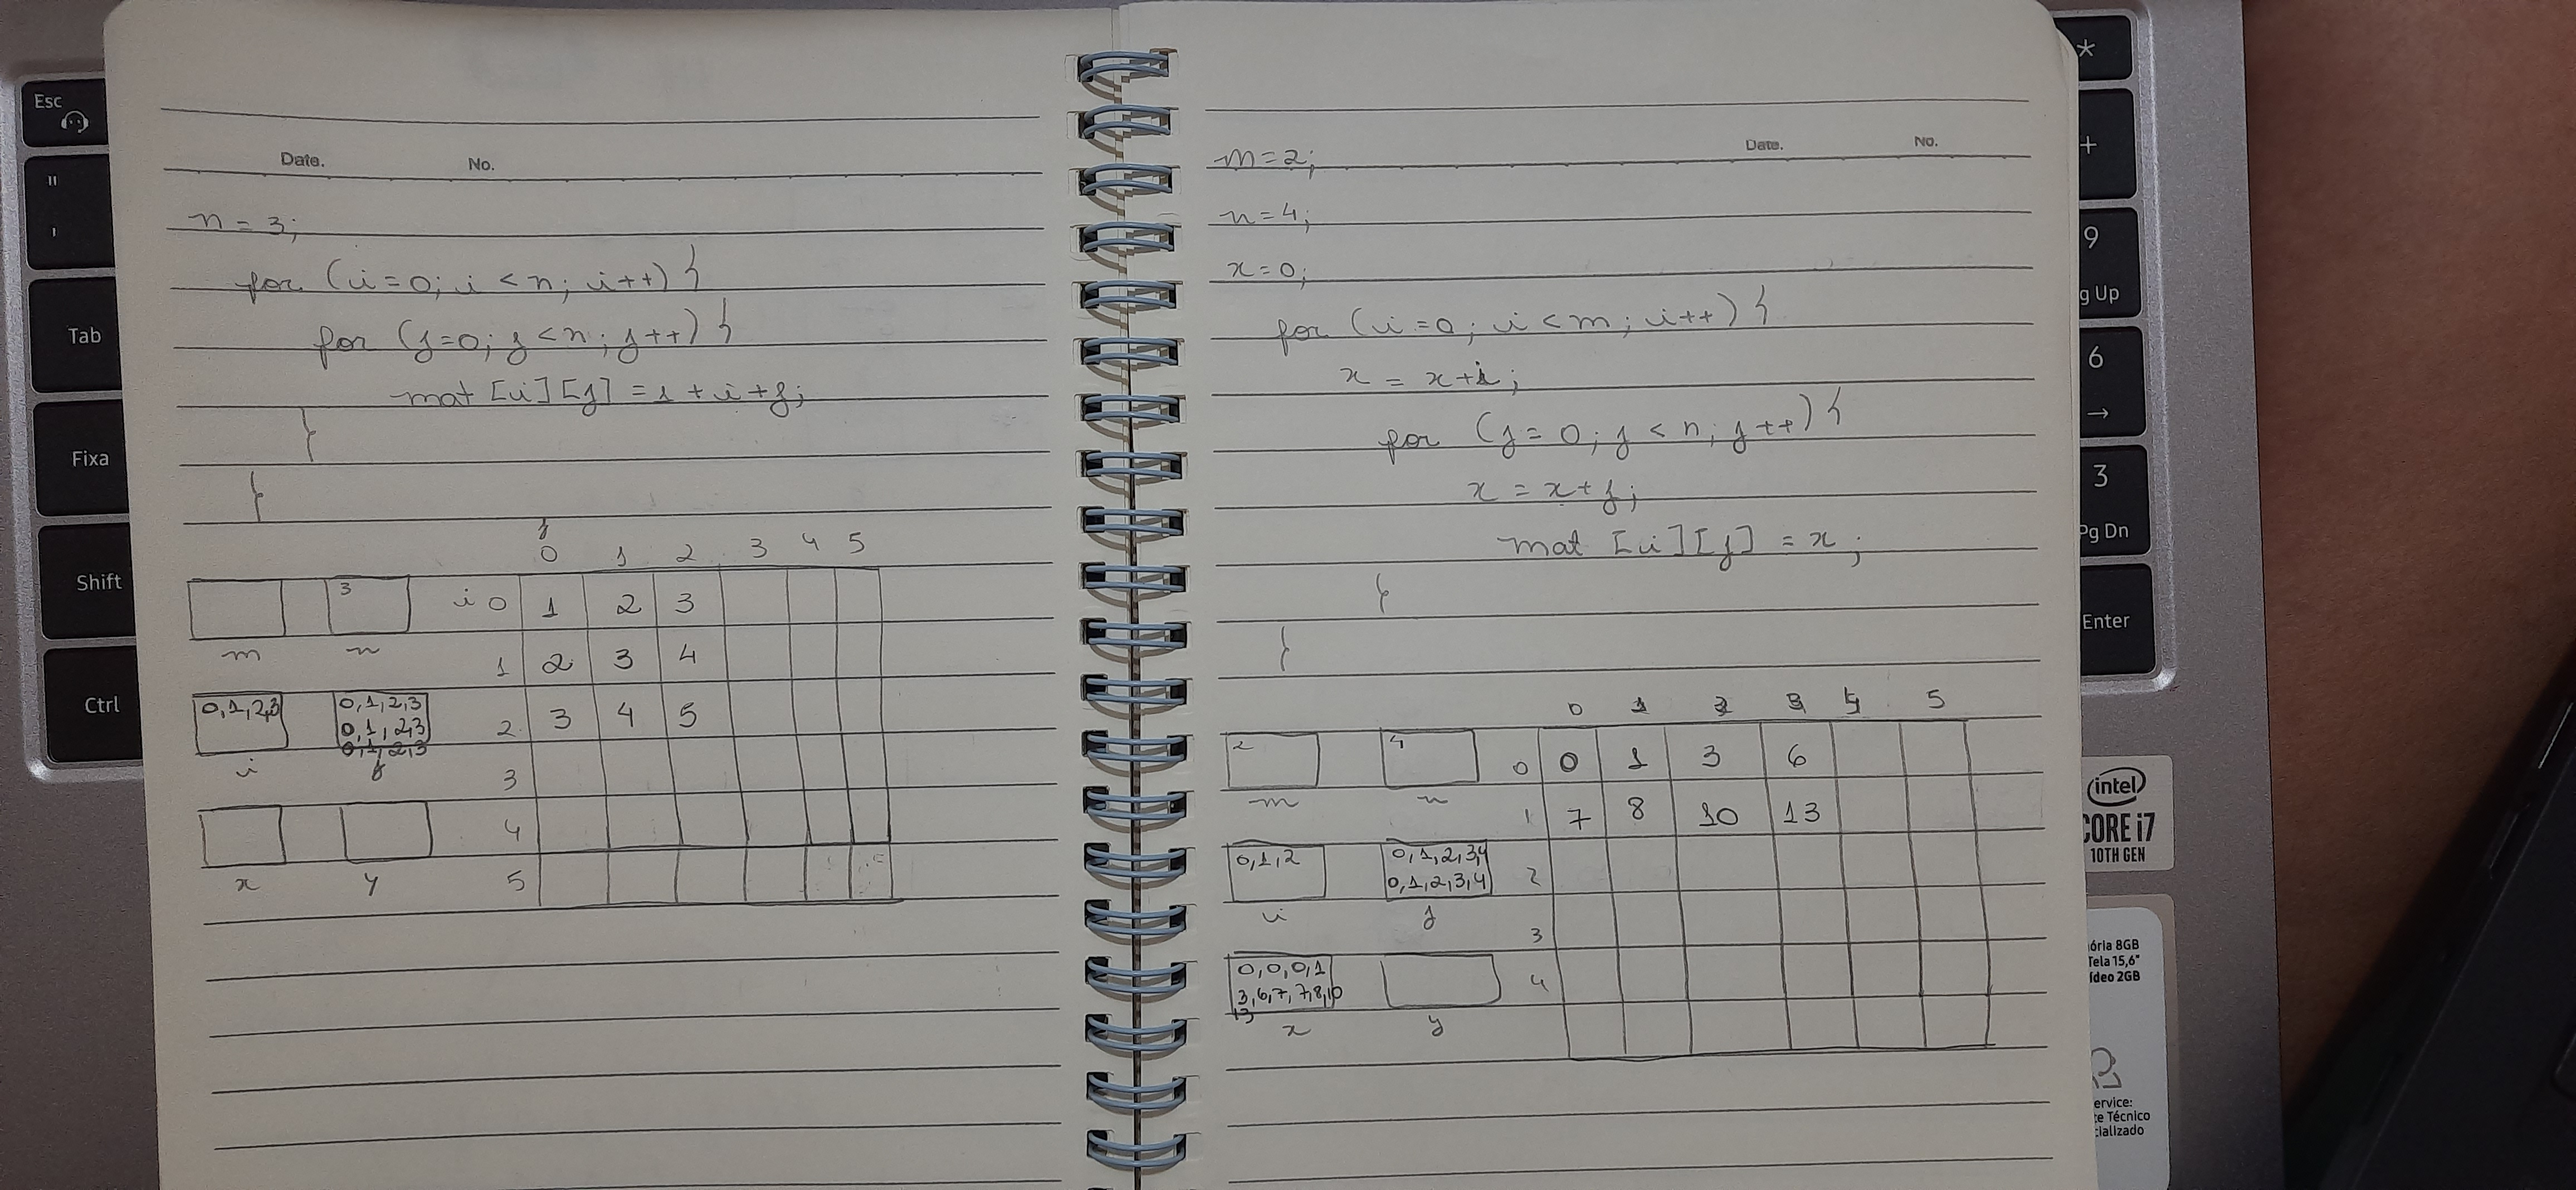 Esc
"
'
Tab
Fixa
Shift
Ctrl
Date.
No.
n = 3;
for (i=0; i < n; i++) {
for (j=0; j < n; j++) {
mat [i][j] = 1 + i + j;
}
}
j
0 1 2 3 4 5
3
i 0 1 2 3
m n
1 2 3 4
0,1,2,3
0,1,2,3
0,1,2,3
0,1,2,3
2 3 4 5
i j
3
4
x y
5
Date.
No.
m=2;
n=4;
x=0;
for (i=0; i < m; i++) {
x = x+i;
for (j=0; j < n; j++) {
x = x+j;
mat [i][j] = x;
}
}
0 1 2 3 4 5
2 4
0 0 1 3 6
m n
1 7 8 10 13
0,1,2
0,1,2,3,4
0,1,2,3,4
2
i j
3
0,0,0,1
3,6,7,7,8,10
13
4
x y
*
+
9
g Up
6
→
3
Pg Dn
Enter
intel
CORE i7
10TH GEN
ória 8GB
Tela 15,6"
ídeo 2GB
ervice:
te Técnico
cializado